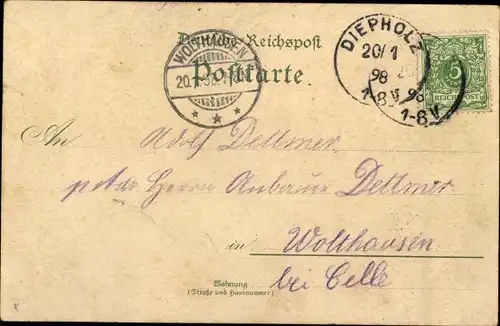 Deutsche Reichspost
Postkarte.
WOLTHAUSEN
20.1.98.
DIEPHOLZ
20/1
98
1-8 V
98
1-8 V
5
REICHSPOST
An Adolf Dettmer
Herrn Anbauer Dettmer
in Wolthausen
bei Celle
Wohnung
(Straße und Hausnummer)